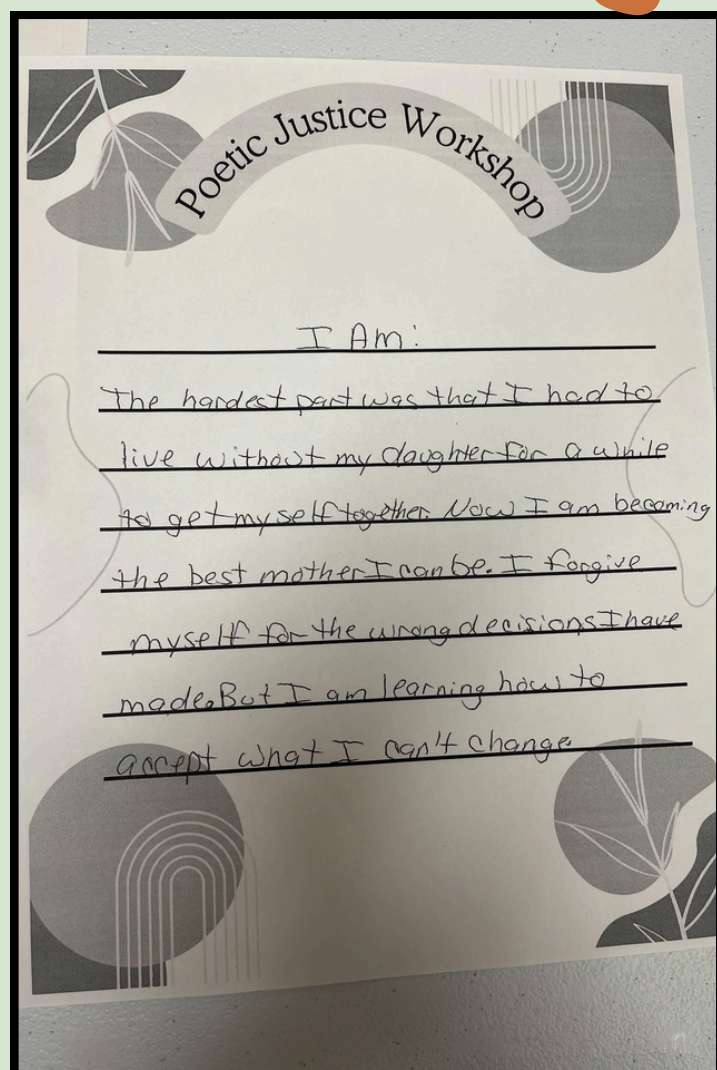 Poetic Justice Workshop
I Am:
The hardest part was that I had to
live without my daughter for a while
to get myself together. Now I am becoming
the best mother I can be. I forgive
myself for the wrong decisions I have
made. But I am learning how to
accept what I can't change.